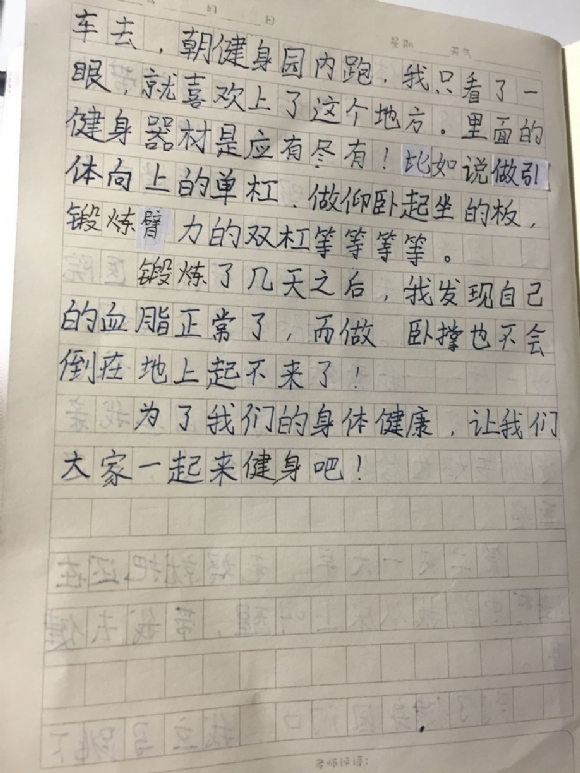 车去，朝健身园内跑，我只看了一
眼，就喜欢上了这个地方。里面的
健身器材是应有尽有！比如说做引
体向上的单杠，做仰卧起坐的板，
锻炼臂力的双杠等等等等。
锻炼了几天之后，我发现自己
的血脂正常了，而做 卧撑也不会
倒在地上起不来了！
为了我们的身体健康，让我们
大家一起来健身吧！